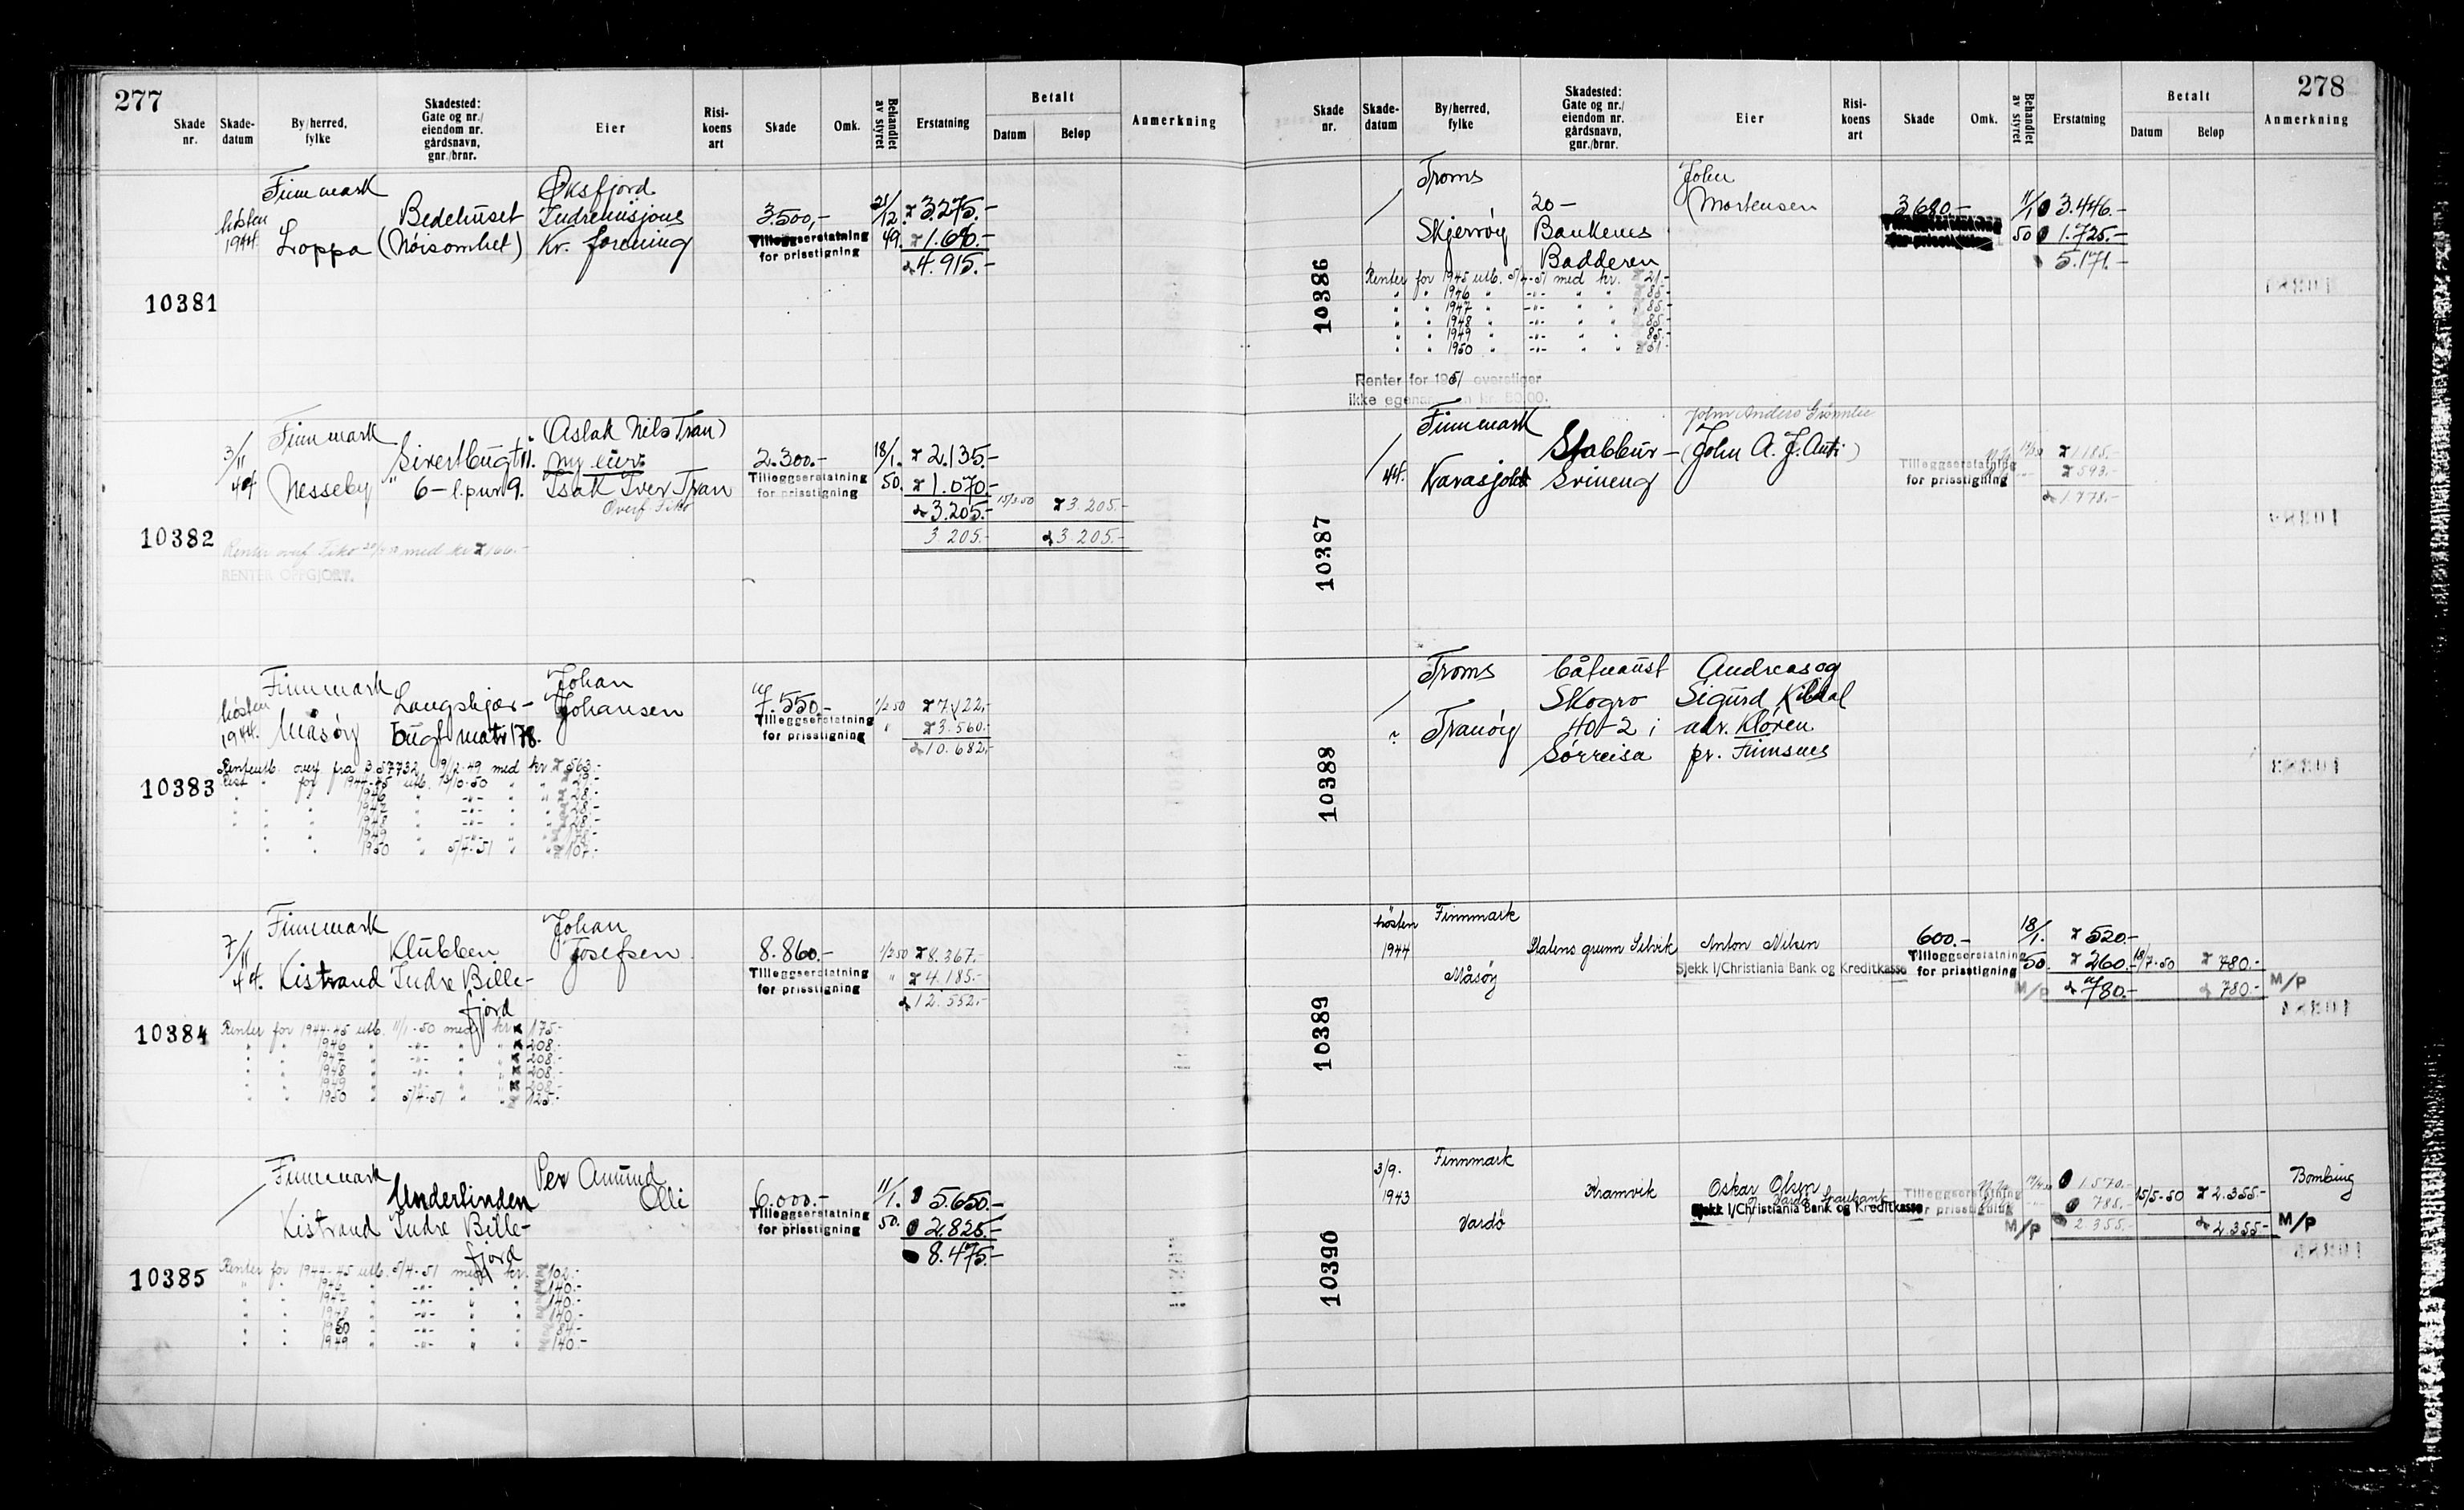 277
Skade nr.
Skade-datum
By/herred, fylke
Skadested: Gate og nr./ eiendom nr. gårdsnavn, gnr./brnr.
Eier
Risi-koens art
Skade
Omk.
Behandlet av styret
Erstatning
Betalt
Datum
Beløp
Anmerkning
10381
høsten 1944.
Finnmark
Loppa
Bedehuset
(Nøisomhet)
Øksfjord
Indremisjons
Kr. forening
3500,-
Tilleggserstatning
for prisstigning
21/12. 49.
3.275.-
1.640.-
4.915.-
10382
3/11 44
Finnmark
Nesseby
Sivertbugt
6 - l.pnr 9.
(Aslak Nils Tran)
ny eier:
Isak Iver Tran
Overf. Siko
2.300.-
Tilleggserstatning
for prisstigning
18/1. 50.
2.135.-
1.070.-
3.205.-
3.205.-
15/3.50
3.205.-
3.205.-
RENTER OPPGJORT.
10383
høsten 1944.
Finnmark
Måsøy
Langskjær-
bugt matr 178.
Johan
Johansen
7.550.-
Tilleggserstatning
for prisstigning
1/2 50
7.122.-
3.560.-
10.682.-
Renteutb. overf fra 3.57732 9/12-49 med kr 563.-
Rest " for 1944-45 utb. 13/10-50 " " 29.-
1946 " -"- " " 28.-
1947 " -"- " " 28.-
1948 " -"- " " 28.-
1949 " -"- " "
1950 " 5/4-51 " " 107.-
10384
7/11 44.
Finnmark
Kistrand
Klubben
Indre Bille-
fjord
Johan
Josefsen
8.860.-
Tilleggserstatning
for prisstigning
1/2 50
8.367.-
4.185.-
12.552.-
Renter for 1944-45 utb. 11/1-50 med kr 175.-
" " 1946 " -"- " " 208.-
" " 1947 " -"- " " 208.-
" " 1948 " -"- " " 208.-
" " 1949 " -"- " " 208.-
" " 1950 " 5/4-51 " " 125.-
10385
Finnmark
Kistrand
Underlinden
Indre Bille-
fjord
Per Amund
Olli
6.000.-
Tilleggserstatning
for prisstigning
11/1. 50.
5.650.-
2.825.-
8.475.-
Renter for 1944-45 utb. 5/4-51 med kr. 102.-
" " 1946 " -"- " " 140.-
" " 1947 " -"- " " 140.-
" " 1948 " -"- " " 140.-
" " 1950 " -"- " " 84.-
" " 1949 " -"- " " 140.-
278
Skade nr.
Skade-datum
By/herred, fylke
Skadested: Gate og nr./ eiendom nr. gårdsnavn, gnr./brnr.
Eier
Risi-koens art
Skade
Omk.
Behandlet av styret
Erstatning
Betalt
Datum
Beløp
Anmerkning
10386
Troms
Skjervøy
20 -
Bankenes
Badderen
John
Mortensen
3680-
11/1 50
3.446.-
1.725.-
5.171.-
Renter for 1945 utb. 5/4-51 med kr. 21.-
" " 1946 " -"- " " 85.-
" " 1947 " -"- " " 85.-
" " 1948 " -"- " " 85.-
" " 1949 " -"- " " 85.-
" " 1950 " -"- " " 51.-
Renter for 1951 overstiger
ikke egenandelen kr. 50.00.
10387
44.
Finnmark
Karasjok
Stabbur -
Svineng
John Anders
(John A. J. Anti)
Tilleggserstatning
for prisstigning
1185.-
593.-
1778.-
10388
?
Troms
Tranøy
Båtnaust
Skogro
40-2 i
Sørreisa
Andreas og
Sigurd Kibdal
adr. Kløven
pr. Finnsnes
10389
høsten
1944
Finnmark
Måsøy
Statens grunn Selvik
Anton Nilsen
Sjekk I/Christiania Bank og Kreditkasse
600.-
Tilleggserstatning
for prisstigning
18/1. 50.
M/P
520.-
260.-
780.-
18/7-50
780.-
780.-
M/P
10390
3/9.
1943
Finnmark
Vardø
Kramvik
Oskar Olsen
Vardø Sparebank
Sjekk I/Christiania Bank og Kreditkasse
Tilleggserstatning
for prisstigning
M/P
1.570.-
785.-
2.355.-
15/5-50
2.355.-
2.355.-
Bombing
M/P